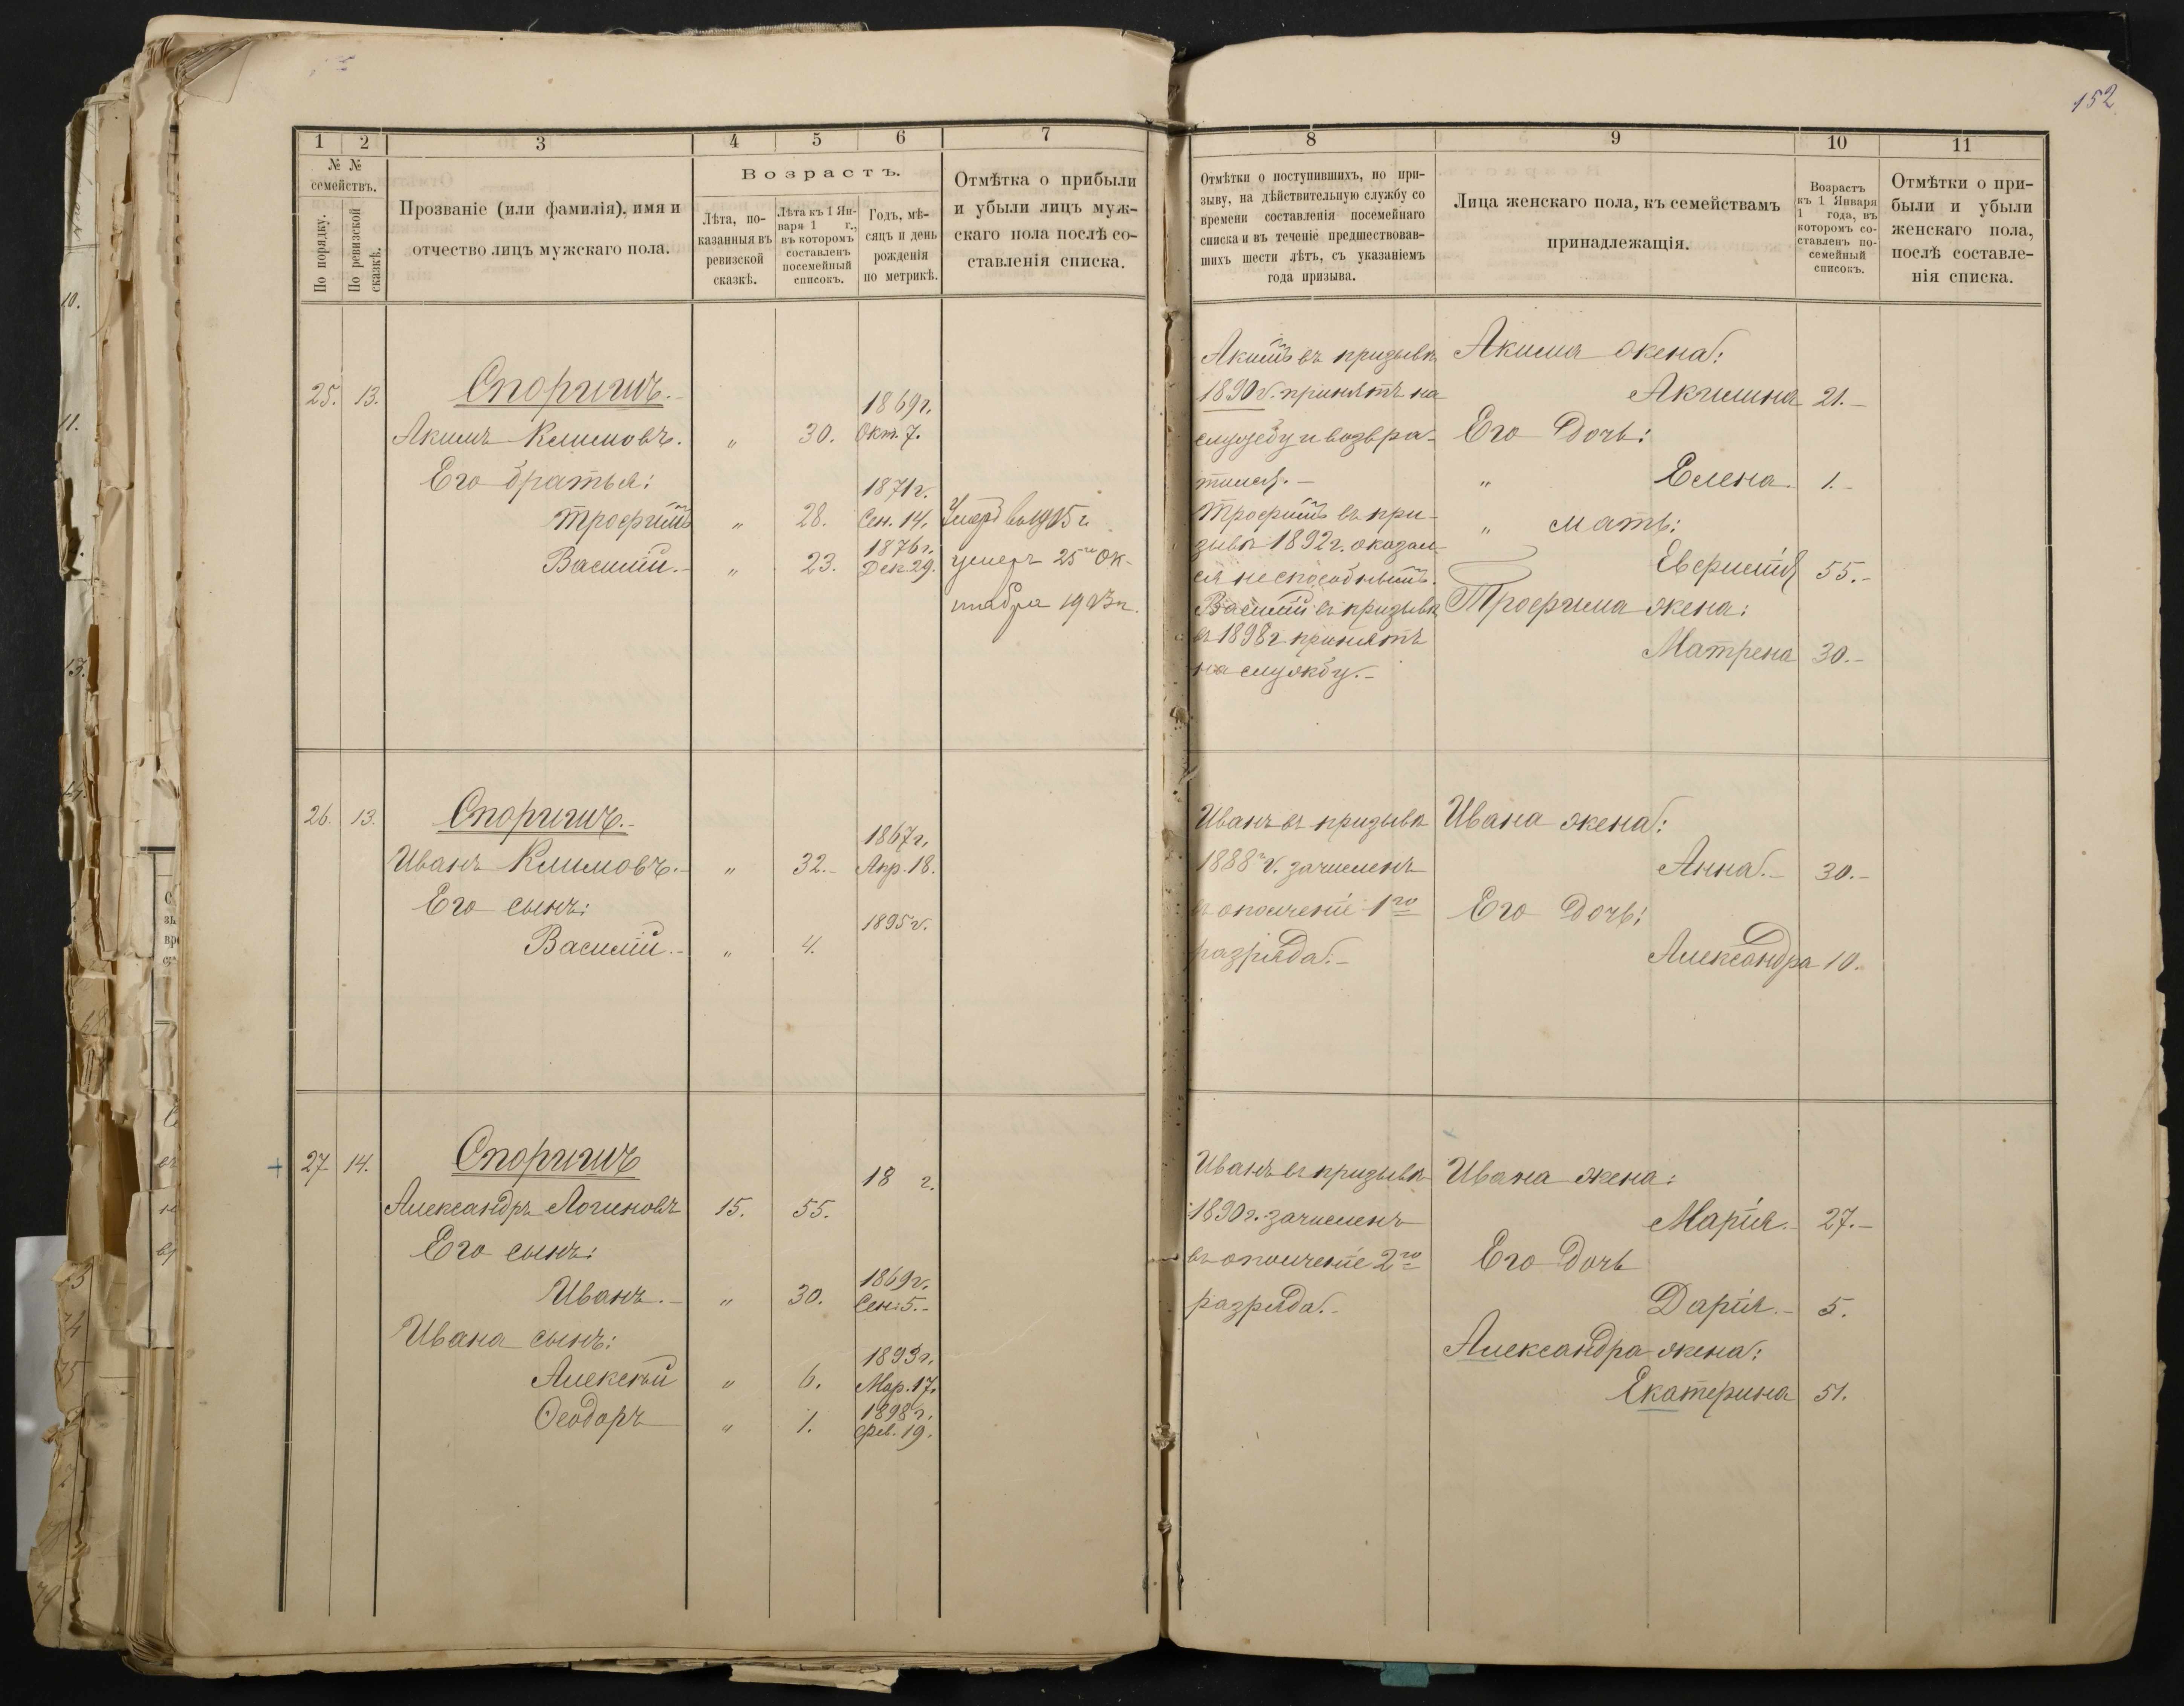 152
1 2 3 4 5 6 7
№ № семействъ.
По порядку.
По ревизской сказкѣ.
Прозваніе (или фамилія), имя и
отчество лицъ мужскаго пола.
Возрастъ.
Лѣта, по-
казанныя въ
ревизской
сказкѣ.
Лѣта къ 1 Ян-
варя 1 г.,
въ которомъ
составленъ
посемейный
списокъ.
Годъ, мѣ-
сяцъ и день
рожденія
по метрикѣ.
Отмѣтка о прибыли
и убыли лицъ муж-
скаго пола послѣ со-
ставленія списка.
25. 13. Споришъ.
1869 г.
Акимъ Климовъ. " 30. Окт. 7.
Его братья:
1871 г.
Трофимъ " 28. Сен. 14. Умеръ въ 1905 г
1876 г.
Василій. " 23. Дек. 29. умеръ 25го Ок-
тября 1903 г.
26. 13. Споришъ.
1867 г.
Иванъ Климовъ. " 32. Апр. 18.
Его сынъ:
1895 г.
Василій. " 4.
27 14. Споришъ
18 г.
Александръ Логиновъ 15. 55.
Его сынъ:
1869 г.
Иванъ. " 30. Сен. 5.
Ивана сынъ:
1893 г.
Алексѣй " 6. Мар. 17.
1898 г.
Ѳеодоръ " 1. Фев. 19.
8 9 10 11
Отмѣтки о поступившихъ, по при-
зыву, на дѣйствительную службу со
времени составленія посемейнаго
списка и въ теченіе предшествовав-
шихъ шести лѣтъ, съ указаніемъ
года призыва.
Лица женскаго пола, къ семействамъ
принадлежащія.
Возрастъ
къ 1 Января
1 года, въ
которомъ со-
ставленъ по-
семейный
списокъ.
Отмѣтки о при-
были и убыли
женскаго пола,
послѣ составле-
нія списка.
Акимъ въ призывъ
1890 г. принятъ на
службу и возвра-
тился.
Трофимъ въ при-
зывъ 1892 г. оказал-
ся неспособнымъ.
Василій въ призывъ
въ 1898 г. принятъ
на службу.
Акима жена:
Акилина 21.
Его дочь:
" Елена. 1.
" мать:
Евфимія 55.
Трофима жена:
Матрена 30.
Иванъ въ призывъ
1888 г. зачисленъ
въ ополченіе 1го
разряда.
Ивана жена:
Анна. 30.
Его дочь:
Александра 10.
Иванъ въ призывъ
1890 г. зачисленъ
въ ополченіе 2го
разряда.
Ивана жена:
Марія. 27.
Его дочь
Дарія. 5.
Александра жена:
Екатерина 51.